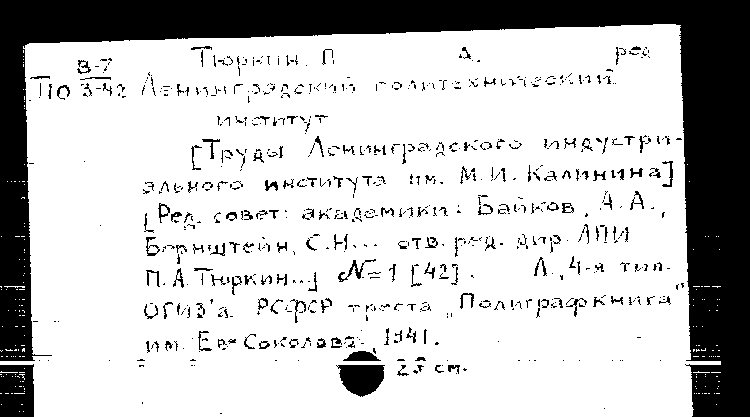 В-7 Тюркин, П. А. ред
По 3-42 Ленинградский политехнический
институт
[Труды Ленинградского индустри-
ального института им. М.И. Калинина]
[Ред. совет: академики: Байков, А.А.,
Бернштейн, С.Н... отв. ред. дир. ЛПИ
П.А. Тюркин...] №1 [42]. Л., 4-я тип.
ОГИЗ'а РСФСР треста „Полиграфкнига"
им. Евг. Соколовой, 1941.
см.